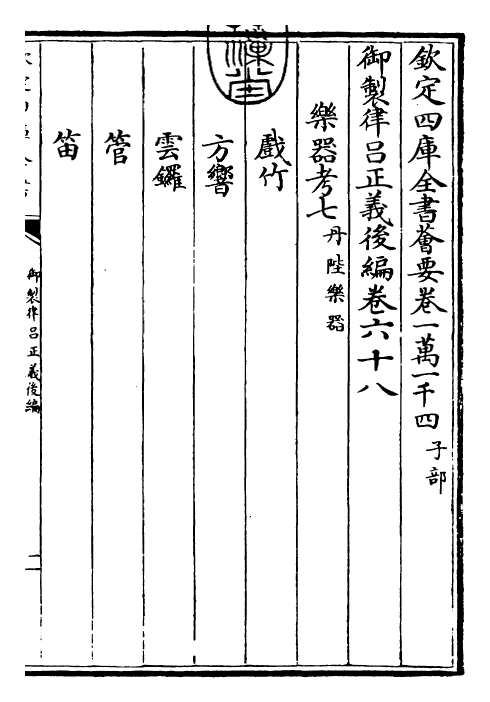 欽定四庫全書薈要卷一萬一千四 子部
御製律呂正義後編卷六十八
樂器考七 丹陛樂器
戲竹
方響
雲鑼
管
笛
御製律呂正義後編